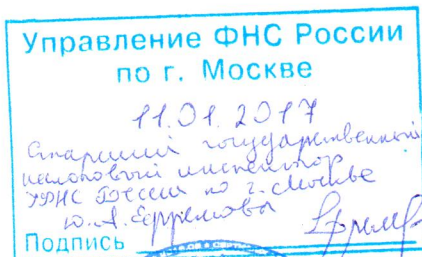 Управление ФНС России
по г. Москве
11.01.2017
Старший государственный
налоговый инспектор
УФНС России по г. Москве
Ю.А. Ефремова
Подпись